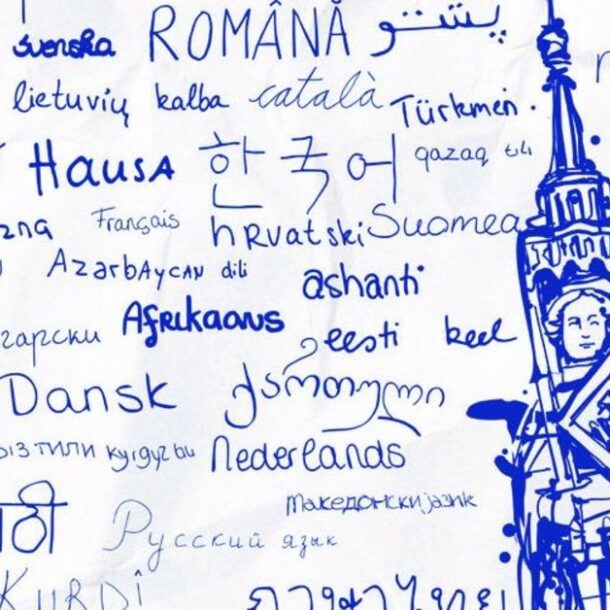 svenska ROMÂNĂ پښتو
lietuvių kalba català Türkmen
Hausa 한국어 qazaq tili
Français hRvatski Suomea
AzərbAycan dili ashanti
гарски Afrikaans eesti keel
Dansk ქართული
тили Nederlands
македонски јазик
Русский язык
KURDÎ ภาษาไทย